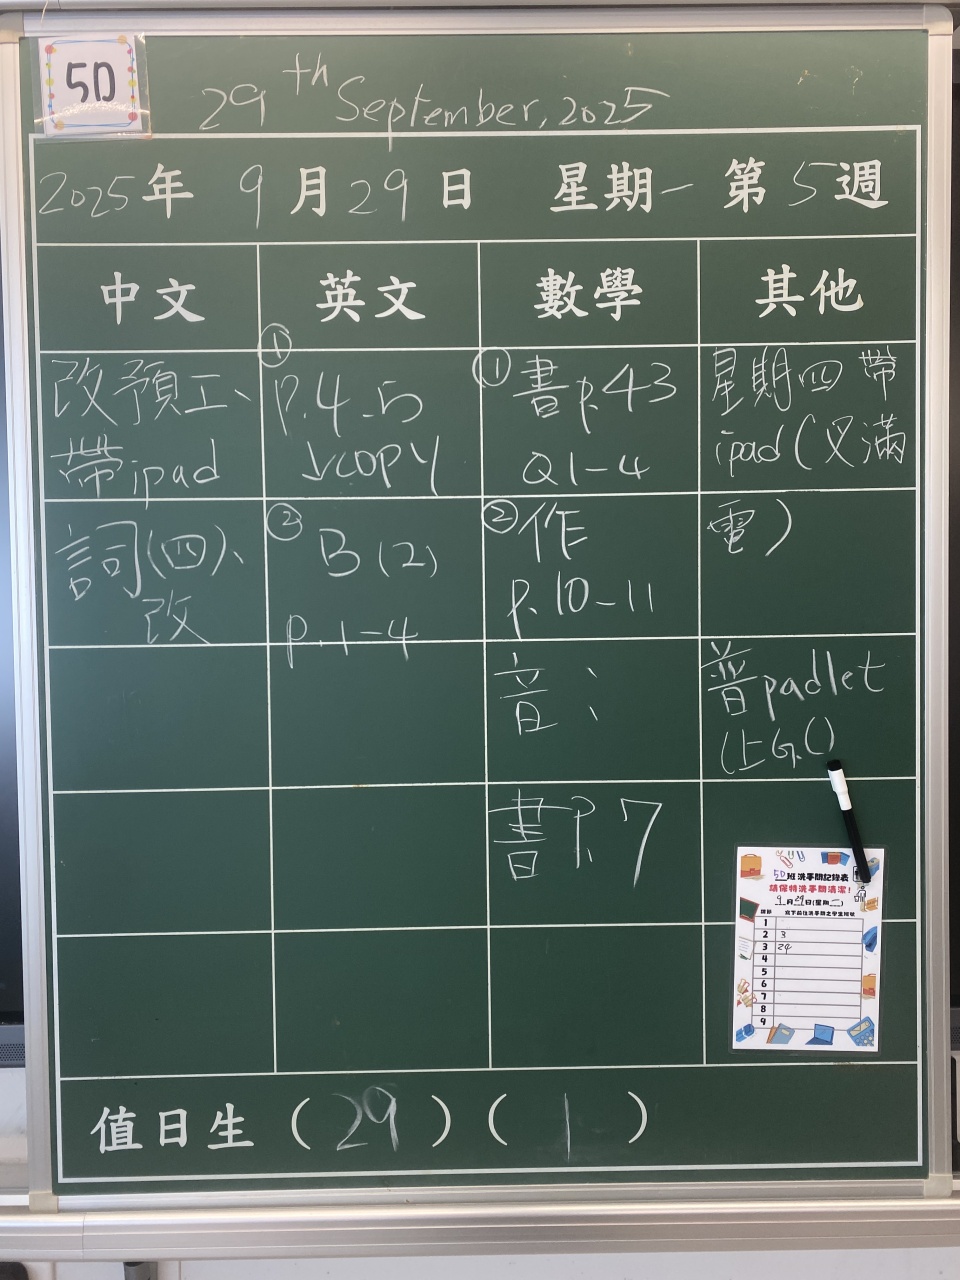 5D
29th September, 2025
2025年 9月29日 星期一 第5週
中文 英文 數學 其他
改預工、
帶ipad
① P.4-5
copy
① 書p.43
Q1-4
星期四帶
ipad(又滿
詞(四)、
改
② B(2)
p.1-4
② 作
p.10-11
電)
音:
普padlet
(上G.C)
書P.7
5D班洗手間記錄表
請保持洗手間清潔!
9月29日(星期一)
課節 寫下前往洗手間之學生班號
1
2 3
3 24
4
5
6
7
8
9
值日生(29)(1)